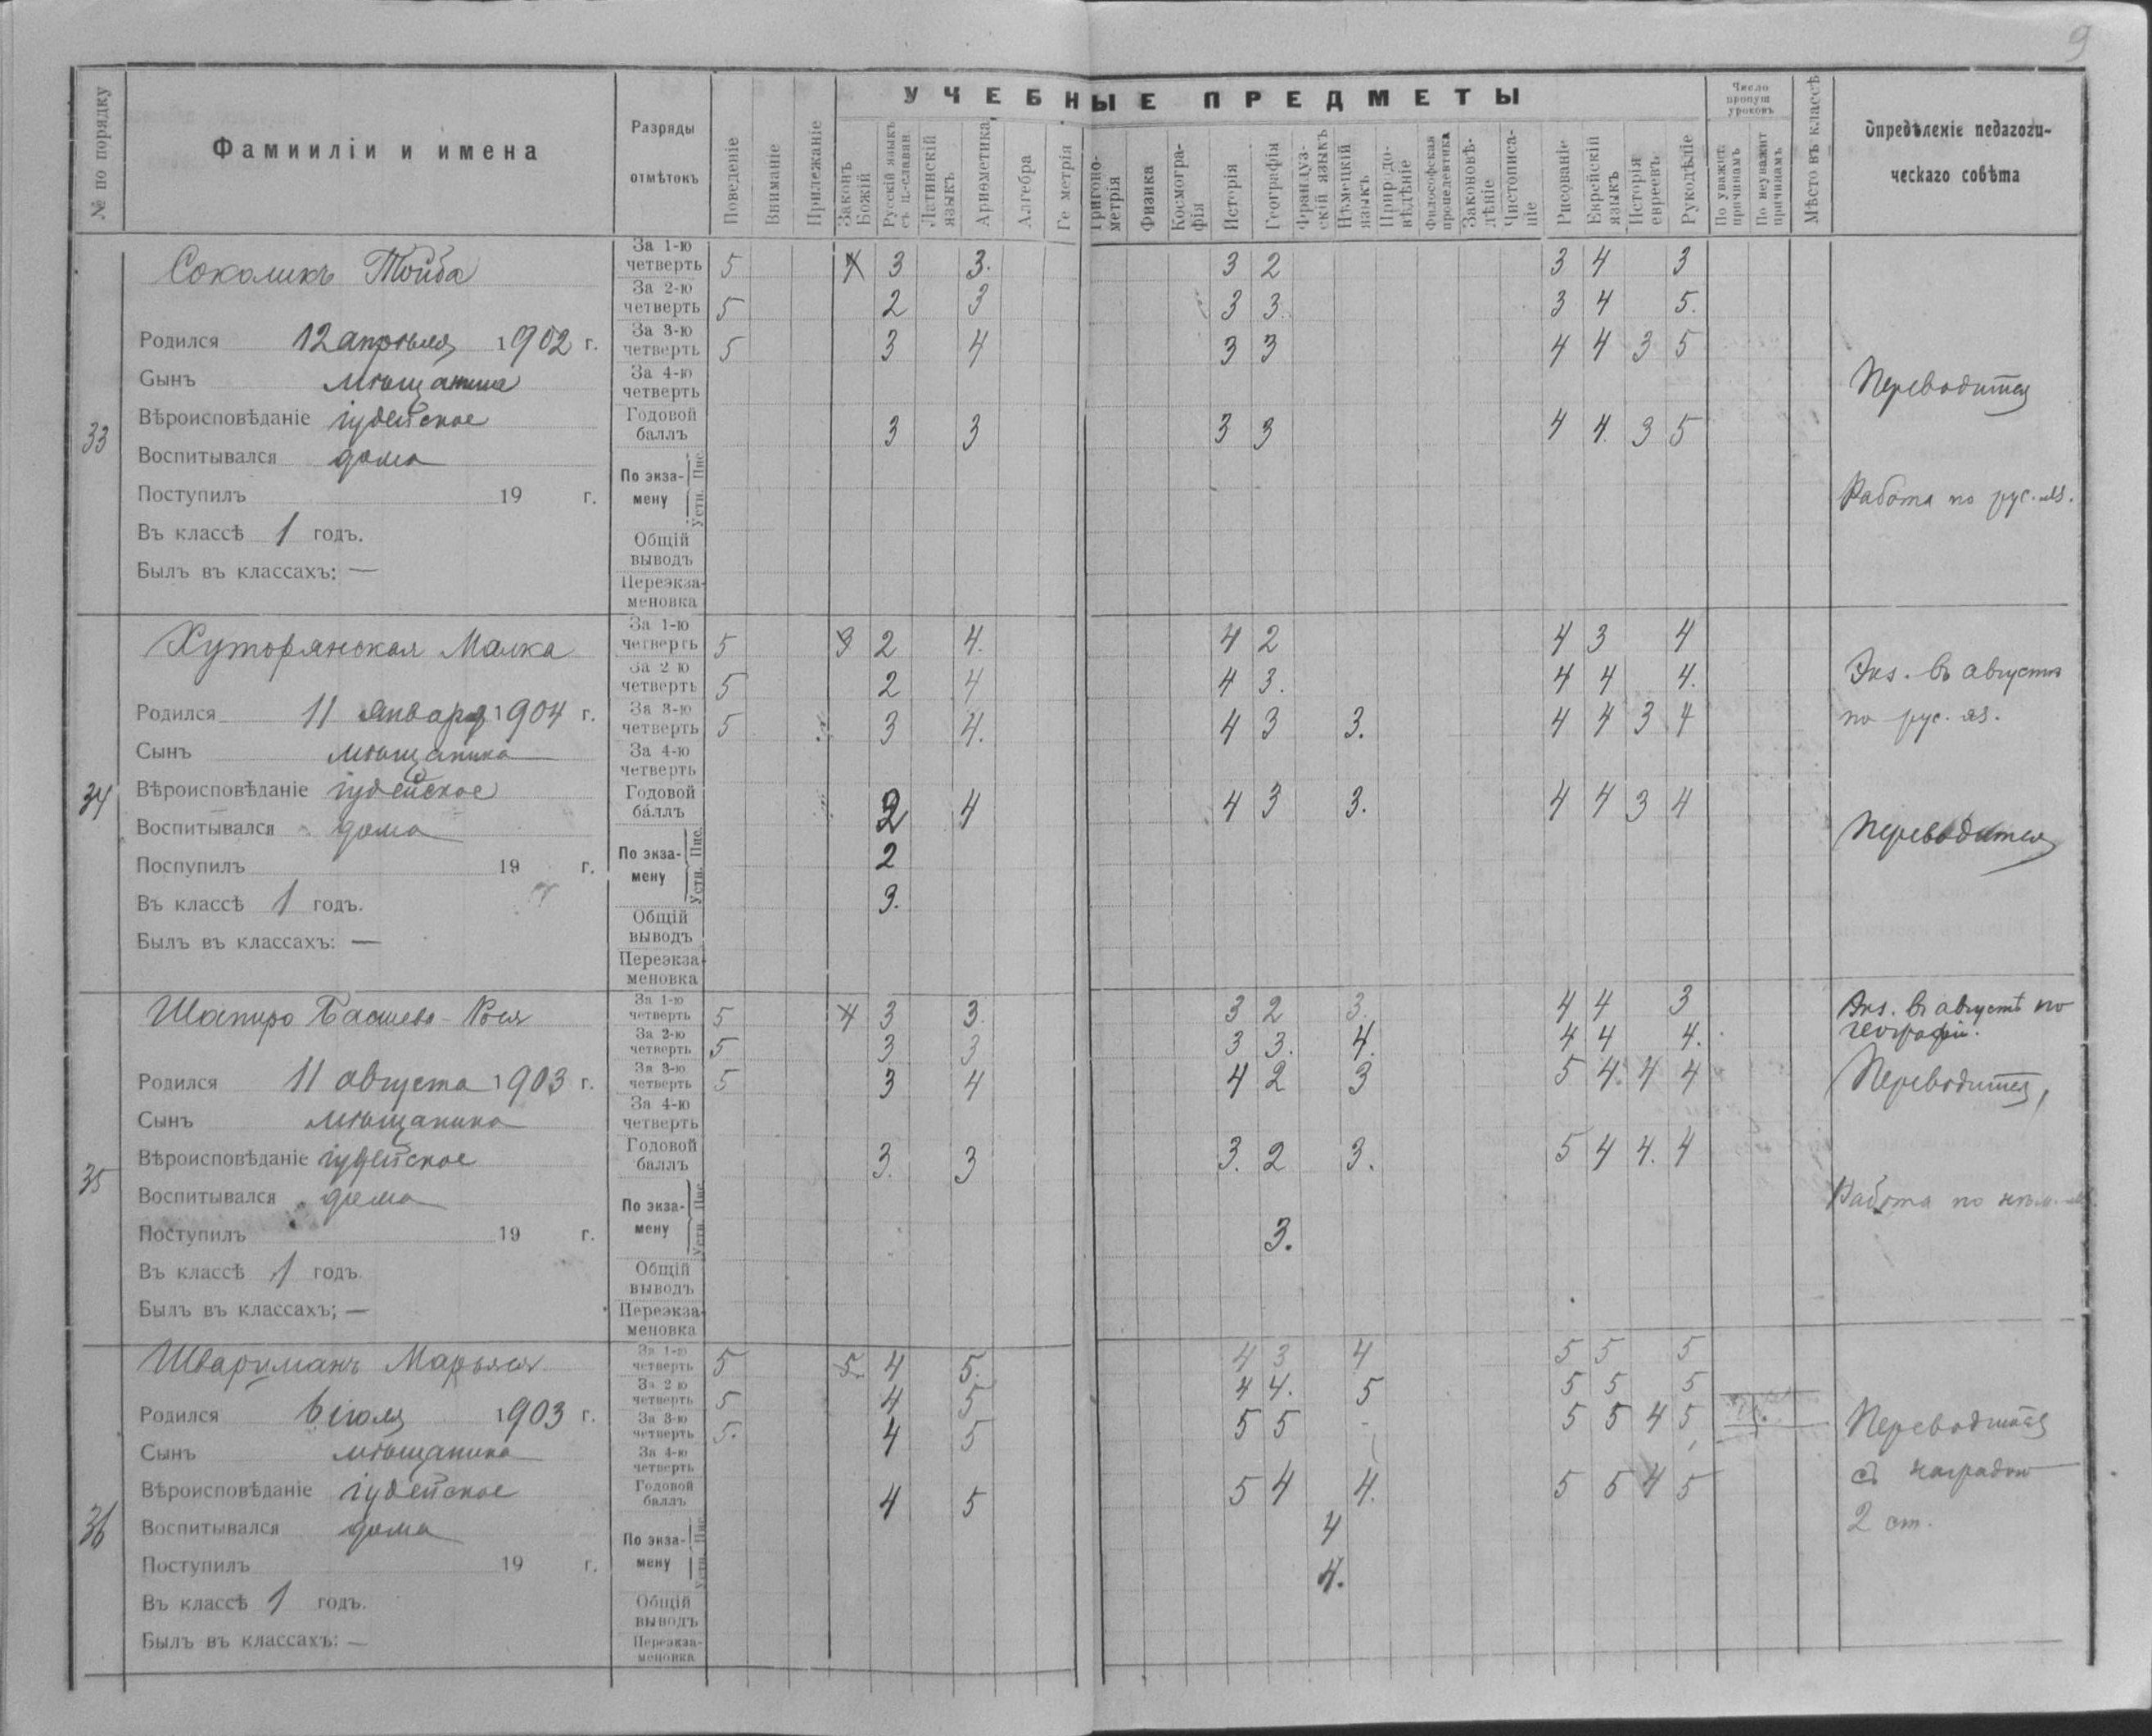 9
№ по порядку
Фамииліи и имена
Разряды отмѣтокъ
Поведеніе
Вниманіе
Прилежаніе
УЧЕБНЫЕ ПРЕДМЕТЫ
Законъ Божій
Русскій языкъ съ ц.-славян
Латинскій языкъ
Ариѳметика
Алгебра
Ге метрія
Тригоно-метрія
Физика
Космогра-фія
Исторія
Географія
Француз-скій языкъ
Нѣмецкій языкъ
Природо-вѣдѣніе
Философская пропедевтика
Законовѣ-дѣніе
Чистописа-ніе
Рисованіе
Еврейскій языкъ
Исторія евреевъ
Рукодѣліе
Число пропущ уроковъ
По уважит. причинамъ
По неуважит причинамъ
Мѣсто въ классѣ
Опредѣленіе педагоги-
ческаго совѣта
33
Соколикъ Тойба
Родился 12 апрѣля 1902 г.
Сынъ мѣщанина
Вѣроисповѣданіе іудейское
Воспитывался дома
Поступилъ 19 г.
Въ классѣ 1 годъ.
Былъ въ классахъ: —
За 1-ю четверть 5 3 3. 3 2 3 4 3
За 2-ю четверть 5 2 3 3 3. 3 4 5.
За 3-ю четверть 5 3 4 3 3 4 4 3 5
За 4-ю четверть
Годовой баллъ 3 3 3 3 4 4. 3 5
По экза-мену Пис. Устн.
Общій выводъ
Переэкза-меновка
Переводится
Работа по рус. яз.
34
Хуторянская Малка
Родился 11 января 1904 г.
Сынъ мѣщанина
Вѣроисповѣданіе іудейское
Воспитывался дома
Поспупилъ 19 г.
Въ классѣ 1 годъ.
Былъ въ классахъ: —
За 1-ю четверть 5 3 2 4. 4 2 4 3 4
За 2 ю четверть 5 2 4 4 3. 4 4 4.
За 3-ю четверть 5 3 4. 4 3 3. 4 4 3 4
За 4-ю четверть
Годовой баллъ 2 4 4 3 3. 4 4 3 4
По экза-мену Пис. 2
Устн. 3.
Общій выводъ
Переэкза-меновка
Экз. въ августѣ
по рус. яз.
Переводится
35
Шапиро Басшева-Рося
Родился 11 августа 1903 г.
Сынъ мѣщанина
Вѣроисповѣданіе іудейское
Воспитывался дома
Поступилъ 19 г.
Въ классѣ 1 годъ.
Былъ въ классахъ; —
За 1-ю четверть 5 4 3 3. 3 2 3. 4 4 3
За 2-ю четверть 5 3 3 3 3. 4. 4 4 4.
За 3-ю четверть 5 3 4 4 2 3 5 4. 4 4
За 4-ю четверть
Годовой баллъ 3. 3 3. 2 3. 5 4 4. 4
По экза-мену Пис. Устн. 3.
Общій выводъ
Переэкза-меновка
Экз. въ августѣ по
географіи.
Переводится,
Работа по нѣм.
36
Шварцманъ Марьяся
Родился 6 іюля 1903 г.
Сынъ мѣщанина
Вѣроисповѣданіе іудейское
Воспитывался дома
Поступилъ 19 г.
Въ классѣ 1 годъ.
Былъ въ классахъ: —
За 1-ю четверть 5 5. 4 5. 4 3 4 5 5 5
За 2 ю четверть 5 4 5 4 4. 5 5 5 5
За 3-ю четверть 5. 4 5 5 5 - 5 5 4 5
За 4-ю четверть
Годовой баллъ 4 5 5 4 4. 5 5 4 5
По экза-мену Пис. 4
Устн. 4.
Общій выводъ
Переэкза-меновка
Переводится
съ наградою
2 ст.